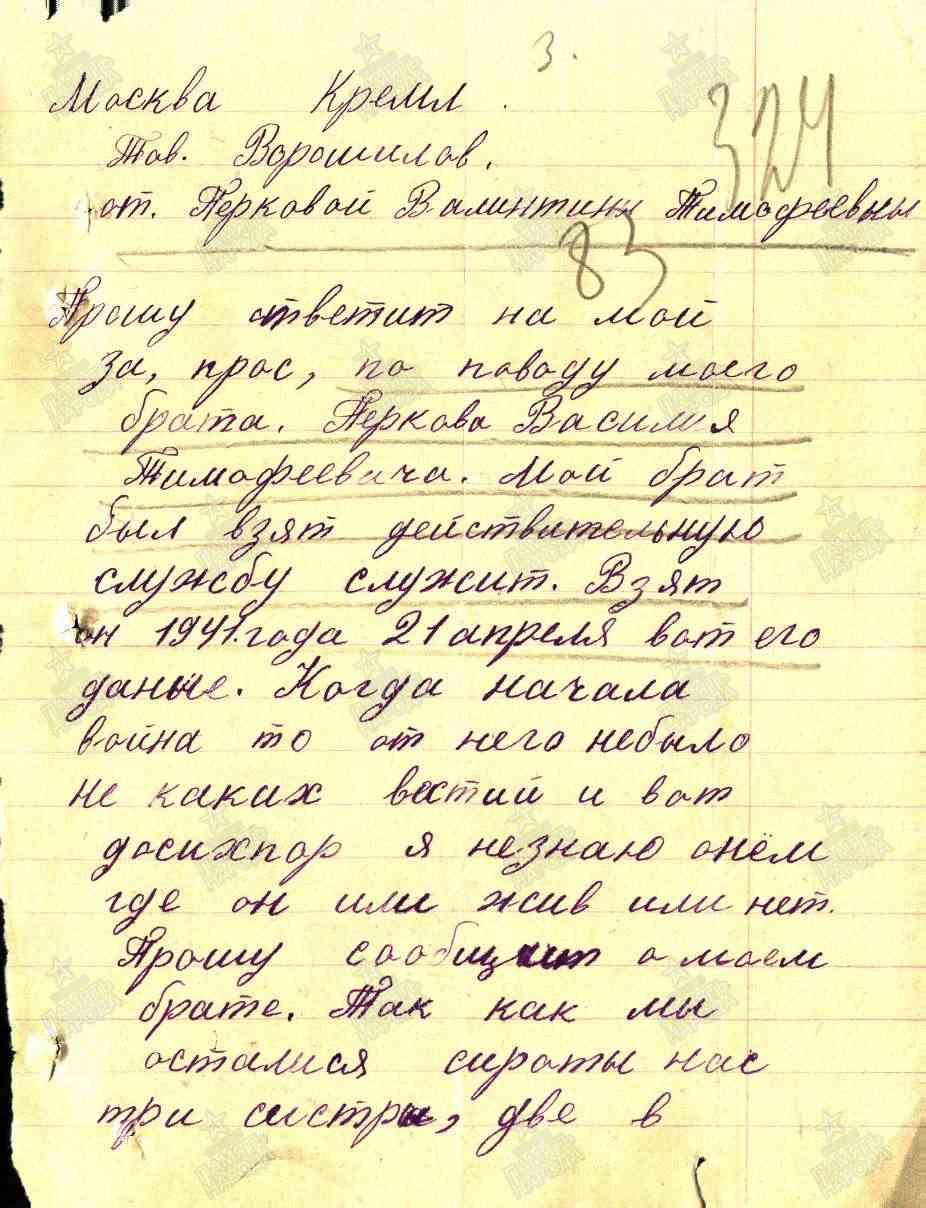 3.
Москва Кремл.
324
Тов. Ворошилов.
от. Перковой Валинтины Тимофеевны
83
Прошу ответит на мой
за, прос, по поводу моего
брата. Перкова Василия
Тимофеевача. Мой брат
был взят действительную
службу служит. Взят
он 1941.года 21 апреля вот его
даные. Когда начала
война то от него небыло
не каких вестий и вот
досихпор я незнаю онём
где он или жив или нет.
Прошу сообщит о моем
брате. Так как мы
осталися сироты нас
три систры, две в